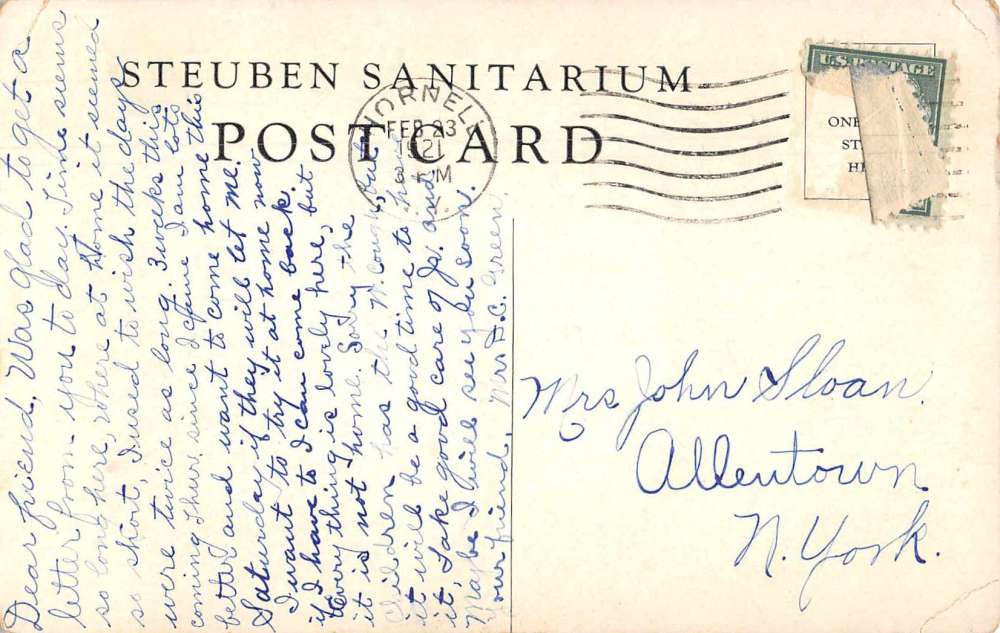 STEUBEN SANITARIUM
POST CARD
HORNELL
FEB 23
1921
3 PM
N.Y.
U.S. POSTAGE
ONE
ST
HE
Dear friend, Was glad to get a
letter from you to day. Time seems
so long here, where at Home it seemed
so short, I used to wish the days
were twice as long. 3 weeks this
coming Thurs since I came I am lots
better and want to come home this
Saturday if they will let me.
I want to try it at home now
if I have to I can come back.
Every thing is lovely here, but
it is not home. Sorry the
children has the W. cough, but
it will be a good time to have
it, Take good care of Ja. and
Maybe I will see you soon.
Your friend, Mrs D.C. Green
Mrs John Sloan.
Allentown
N. York.